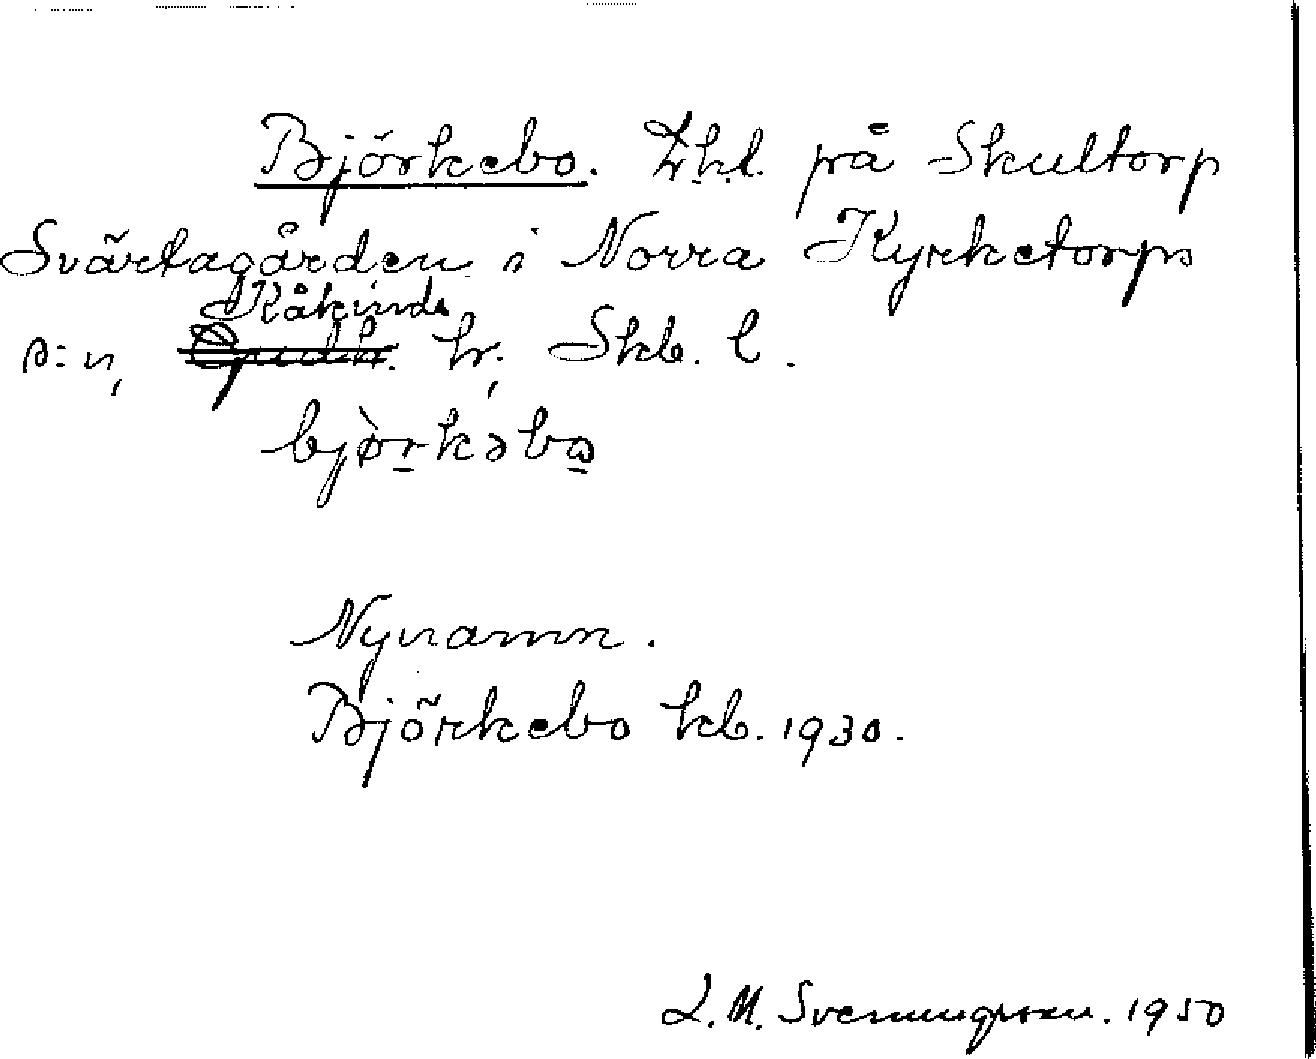 Björkebo. Lht. på Skultorp
Svärtagården i Norra Kyrketorps
Kåkinds
s:n, hr, Skb. l.
bjòrkəbɷ
Nynamn.
Björkebo kb. 1930.
L. M. Svenungsson. 1950